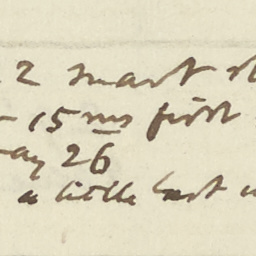 2 smart
15 ms first
ay 26
a little last